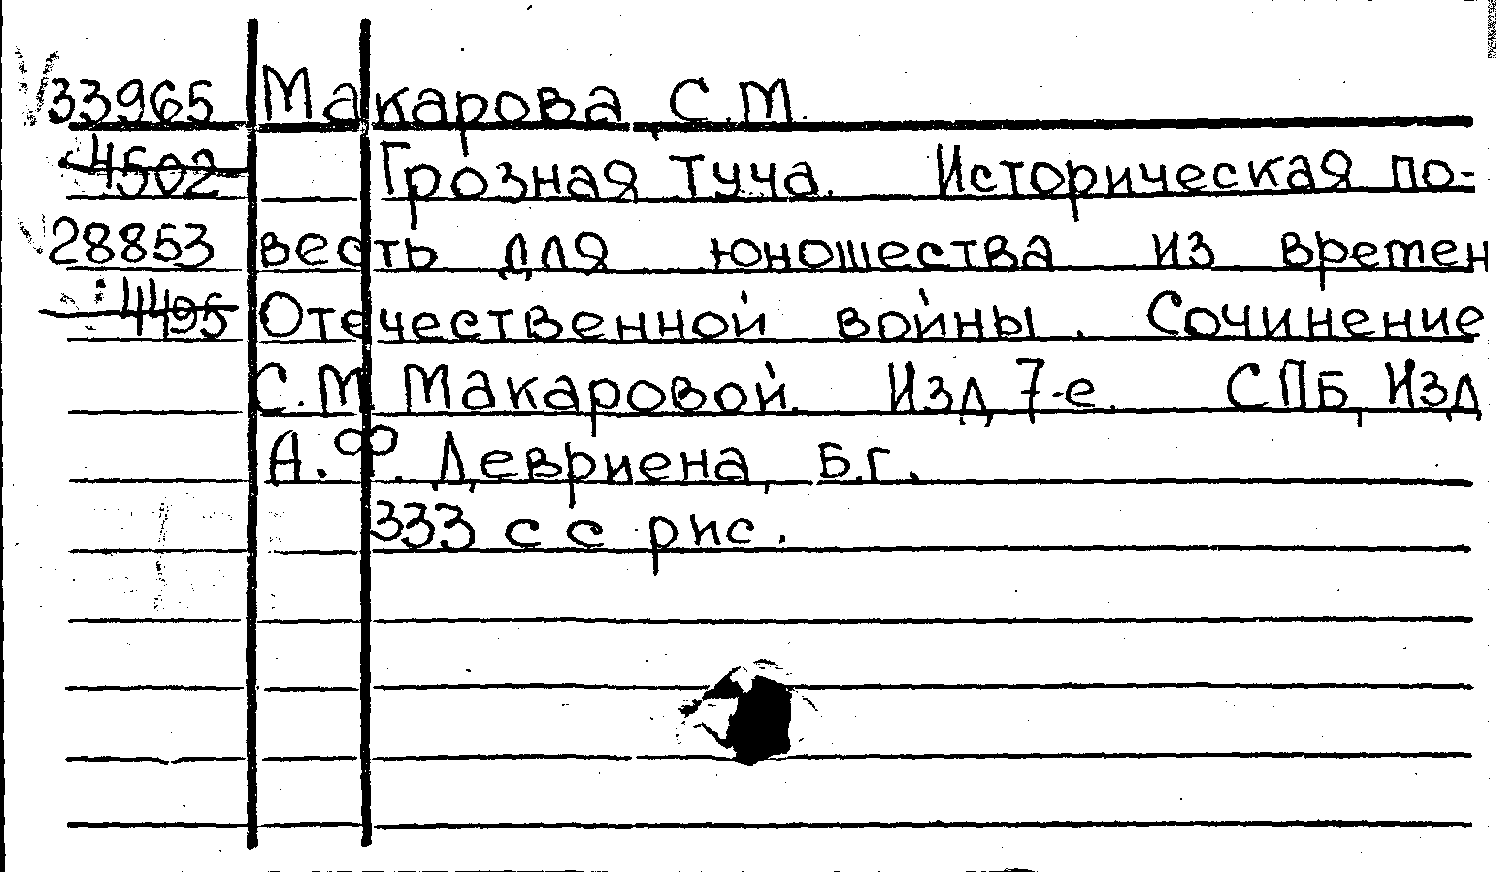 33965 Макарова, С.М.
4502 Грозная туча. Историческая по-
28853 весть для юношества из времен
4495 Отечественной войны. Сочинение
С.М. Макаровой. Изд. 7-е. СПБ, Изд.
А.Ф. Девриена, Б.г.
333 с с рис.